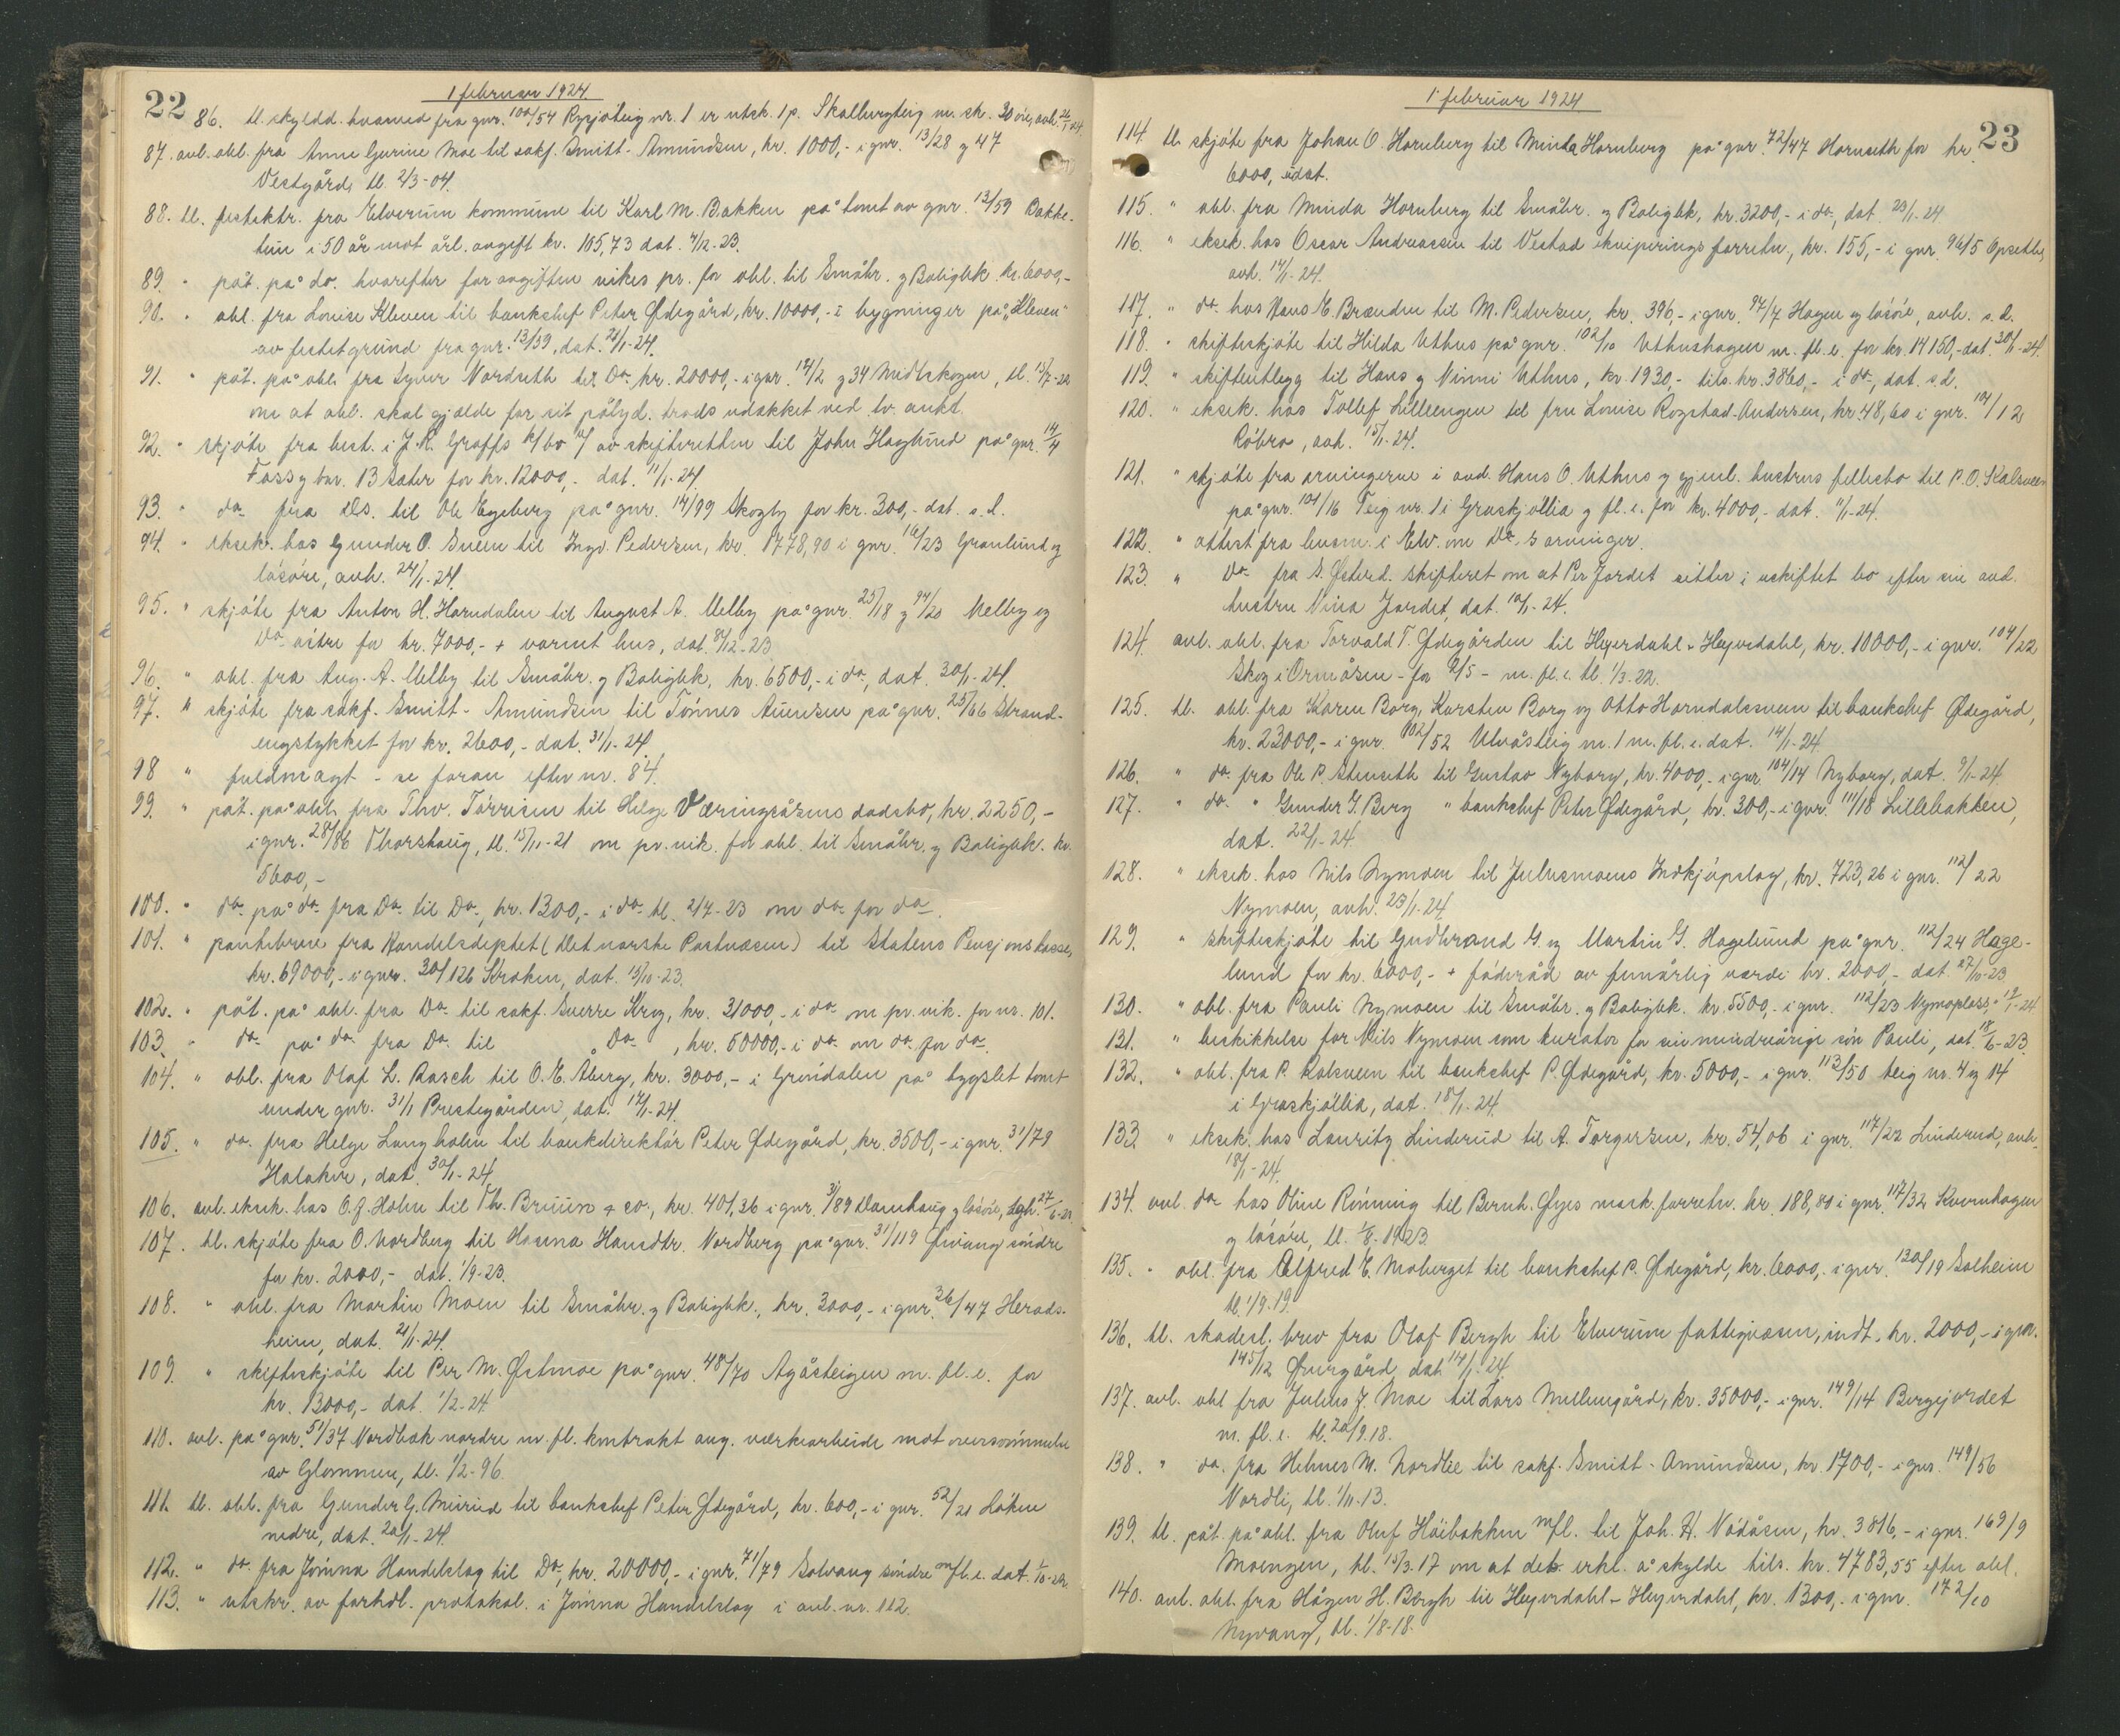 22
1 februar 1924
86. tl. skyldd. hvorved fra gnr. 100/54 Rysjöteig nr. 1 er utsk. 1 p. Skalbergteig m. sk. 30 öre, avh. 26/1-24.
87. avl. obl. fra Anne Gurine Moe til sakf. Smitt-Amundsen, kr. 1000,- i gnr. 13/28 og 47
Vestgård, tl. 2/3-04.
88. tl. festektr. fra Elverum kommune til Karl M. Bakken på tomt av gnr. 13/59 Bakke-
tun i 50 år mot årl. avgift kr. 105,73 dat. 4/12-23.
89. " påt. på do. hvorefter for avgiften vikes pr. for obl. til Småbr. og Boligbk. kr. 6000,-
90. " obl. fra Louise Kleven til bankchef Peter Ödegård, kr. 10000,- i bygninger på "Kleven"
av festetgrund fra gnr. 13/39, dat. 26/1-24.
91. " påt. på obl. fra Syver Nordseth til Do. kr. 20000,- i gnr. 14/2 og 34 Midtskogen, tl. 15/7-22
om at obl. skal gjælde for sit pålyd. trods utslikket ved tv. aukt.
92. " skjöte fra best. i J. K. Graffs k/bo og av skifteretten til John Haglund på gnr. 14/4
Fossg bnr. 13 Sæter for kr. 12000,- dat. 11/1-24.
93. " do. fra Ds. til Ole Engeberg på gnr. 14/99 Skogly for kr. 300,- dat. s. d.
94. " eksek. hos Gunder O. Sveen til Ingv. Pedersen, kr. 1778,90 i gnr. 16/23 Granlund og
lösöre, avh. 24/1-24.
95. " skjöte fra Anton H. Horndalen til August A. Melby på gnr. 25/18 og 94/20 Melby og
Do. östre for kr. 7000,- + varmt hus, dat. 8/12-23
96. " obl. fra Aug. A. Melby til Småbr. og Boligbk. kr. 6500,- i do., dat. 30/1-24.
97. " skjöte fra sakf. Smitt-Amundsen til Tönnes Aunesen på gnr. 25/66 Strand-
engstykket for kr. 2600,- dat. 31/1-24.
98 " fuldmagt - se foran efter nr. 84.
99. " påt. på obl. fra Thv. Törrisen til Helge Væringsåsens dödsbo, kr. 2250,-
i gnr. 28/86 Thorshaug, tl. 15/11-21 om pr. vik. for obl. til Småbr. og Boligbk. kr.
5600,-
100. " do. på do. fra Do. til Do., kr. 1300,- i do. tl. 2/7-23 om do. for do.
101. " pantebrev fra Handelsdeptet (Det norske Postvæsen) til Statens Pensjonskasse,
kr. 69000,- i gnr. 30/126 Kroken, dat. 15/10-23.
102. " påt. på obl. fra Do. til sakf. Sverre Krog, kr. 31000,- i do. om pr. vik. for nr. 101.
103. " do. på do. fra Do. til Do., kr. 50000,- i do. om do. for do.
104. " obl. fra Olaf L. Rasch til O. E. Åberg, kr. 3000,- i Grindalen på bygslet tomt
under gnr. 31/1 Prestegården, dat. 14/1-24.
105. " do. fra Helge Langholm til bankdirektör Peter Ödegård, kr. 3500,- i gnr. 31/79
Holaker, dat. 30/1-24.
106. avl. eksek. hos O. J. Holm til Th. Bruun & co., kr. 401,36 i gnr. 31/89 Damhaug og lösöre, tgl. 27/6-21
107. tl. skjöte fra O. Nordberg til Hanna Hansdtr. Nordberg på gnr. 31/119 Övang söndre
for kr. 2000,- dat. 1/9-23.
108. " obl. fra Martin Moen til Småbr. og Boligbk., kr. 3000,- i gnr. 36/47 Herads-
heim, dat. 21/1-24.
109. " skifteskjöte til Per M. Östmoe på gnr. 48/70 Agåsteigen m. fl. e. for
kr. 13000,- dat. 1/2-24
110. avl. på gnr. 51/37 Nordbak nordre m. fl. kontrakt ang. værkearbeide mot oversvömmelse
av Glommen, tl. 1/2-96.
111. tl. obl. fra Gunder G. Meirud til bankchef Peter Ödegård, kr. 600,- i gnr. 52/21 Löken
nedre, dat. 20/1-24.
112. " do. fra Jömna Handelslag til Do., kr. 20000,- i gnr. 71/79 Solvang söndre m. fl. e. dat.
113. " utskr. av forhdl. protokol. i Jömna Handelslag i anl. nr. 112.
1. februar 1924
23
114. tl. skjöte fra Johan O. Hornberg til Minda Hornberg på gnr. 72/47 Hornseth for kr.
6000, udat.
115. " obl. fra Minda Hornberg til Småbr. og Boligbk. kr. 3200,- i do., dat. 23/1-24
116. " eksek. hos Oscar Andreassen til Vestad ekviperingsforretn., kr. 155,- i gnr. 96/5 Opsetbr,
avh. 14/1-24.
117. " do. hos Hans E. Brænden til M. Pedersen, kr. 396,- i gnr. 97/7 Hagen og lösöre, avh. s. d.
118. " skifteskjöte til Hilda Uthus på gnr. 102/10 Uthushagen m. fl. e. for kr. 14150,- dat. 30/1-24.
119. " skifteutlegg til Hans og Ninni Uthus, kr. 1930,- tils. kr. 3860,- i do., dat. s. d.
120. " eksek. hos Tollef Lilleengen til fru Louise Rogstad-Andersen, kr. 48,60 i gnr. 101/12
Röbro, avh. 15/1-24.
121. " skjöte fra arvingerne i avd. Hans O. Uthus og gjenl. hustrus fellesbo til P. O. Kolsveen
på gnr. 101/16 Teig nr. 1 i Graskjöllia og fl. e. for kr. 4000,- dat. 11/1-24.
122. " attest fra lensm. i Elv. om Do. s arvinger.
123. " Do. fra S. Österd. skifteret om at Per Jordet sitter i uskiftet bo efter sin avd.
hustru Nina Jordet, dat. 10/1-24.
124. avl. obl. fra Torvald T. Ödegården til Heyerdahl-Heyerdahl, kr. 10000,- i gnr. 104/22
Skog i Ormåsen - for 2/5 - m. fl. e. tl. 1/3-22.
125. tl. obl. fra Karen Borg, Karsten Borg og Otto Horndalsveen til bankchef Ödegård,
kr. 23000,- i gnr. 102/52 Ulvåsteig nr. 1 m. fl. e. dat. 14/1-24.
126. " do. fra Ole P. Stenseth til Gustav Nyborg, kr. 4000,- i gnr. 104/14 Nyborg, dat. 9/1-24.
127. " do. " Gunder G. Berg " bankchef Peter Ödegård, kr. 300,- i gnr. 111/18 Lillebakken,
dat. 22/1-24.
128. " eksek. hos Nils Nymoen til Julusmoens Indkjöpslag, kr. 723,26 i gnr. 112/22
Nymoen, avh. 23/1-24.
129. " skifteskjöte til Gudbrand G. og Martin G. Hagelund på gnr. 112/24 Hage-
lund for kr. 6000,- + föderåd av femårlig værdi kr. 2000,- dat. 27/10-23
130. " obl. fra Pauli Nymoen til Småbr. og Boligbk. kr. 5500,- i gnr. 112/23 Nymoplass, 19/1-24
131. " beskikkelse for Nils Nymoen som kurator for sin mindreårige sön Pauli, dat. 18/6-23.
132. " obl. fra P. Kolsveen til bankchef P. Ödegård, kr. 5000,- i gnr. 113/50 teig nr. 4 og 14
i Graskjöllia, dat. 18/1-24.
133. " eksek. hos Lauritz Linderud til A. Torgersen, kr. 54,06 i gnr. 117/22 Linderud, avh.
18/1-24.
134. avl. do. hos Oline Rönning til Bernh. Öyes mask. forretn. kr. 188,80 i gnr. 117/32 Kvernhagen
og lösöre, tl. 1/8-1923.
135. " obl. fra Alfred E. Moberget til bankchef P. Ödegård, kr. 6000,- i gnr. 130/19 Solheim
tl. 1/9-19.
136. tl. skadesl. brev fra Olaf Bergh til Elverum fattigvæsen, indt. kr. 2000,- i gnr.
145/12 Övergård, dat. 14/1-24.
137. avl. obl. fra Julius J. Moe til Lars Mellemgård, kr. 35000,- i gnr. 149/14 Bergejordet
m. fl. e. tl. 20/9.18.
138. " do. fra Helmer M. Nordlie til sakf. Smitt-Amundsen, kr. 1700,- i gnr. 149/56
Nordli, tl. 1/11-13.
139. tl. påt. på obl. fra Oluf Höibakken m fl. til Joh. H. Nödåsen, kr. 3816,- i gnr. 169/9
Moengen, tl. 15/3.17 om at deb. erkl. å skylde tils. kr. 4783,55 efter obl.
140. avl. obl. fra Hågen H. Bergh til Heyerdahl-Heyerdahl, kr. 1300,- i gnr. 172/10
Nyvang, tl. 1/8-18.